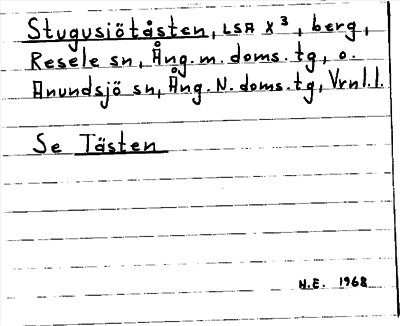 Stugusjötåsten, LSA X³, berg,
Resele sn, Ång. m. doms. tg, o.
Anundsjö sn, Ång. N. doms. tg, Vrnl.l.
Se Tåsten
H.E. 1968